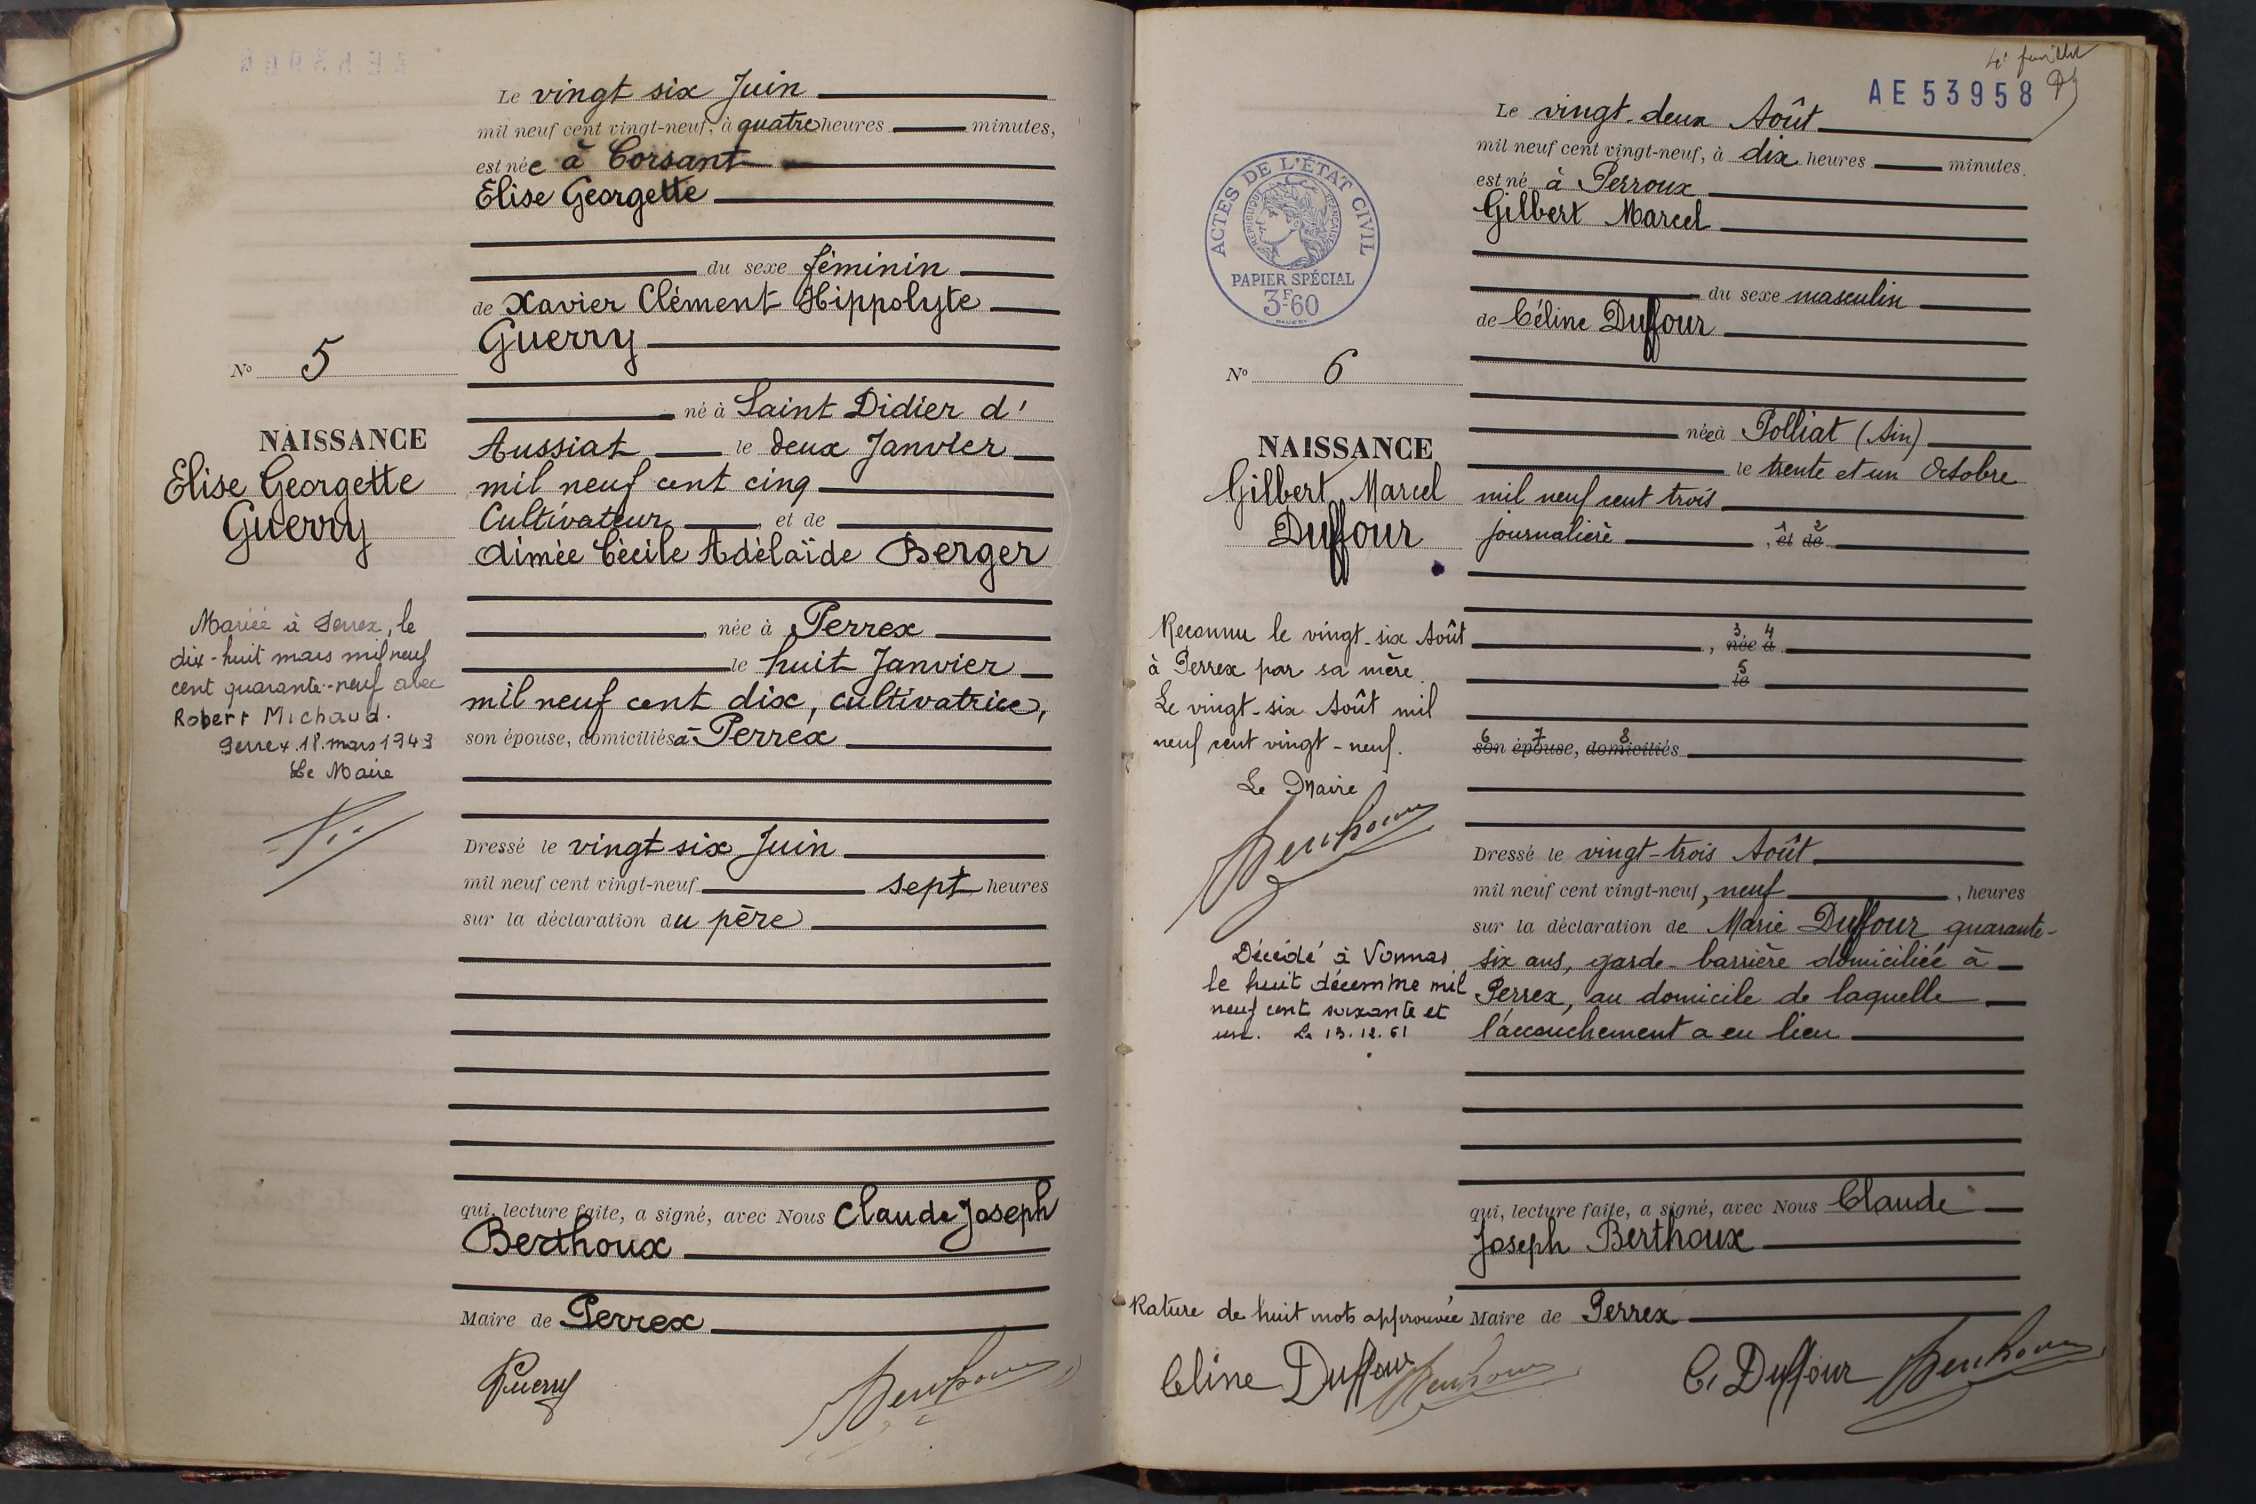 Le vingt six Juin
mil neuf cent vingt-neuf, à quatre heures minutes,
est née à Corsant
Elise Georgette
du sexe féminin
de Xavier Clément Hippolyte
Guerry
né à Saint Didier d'
Aussiat le deux Janvier
mil neuf cent cinq
Cultivateur, et de
Aimée Cécile Adélaïde Berger
, née à Perrex
le huit Janvier
mil neuf cent dix, cultivatrice,
son épouse, domiciliés à Perrex
Dressé le vingt six Juin
mil neuf cent vingt-neuf sept heures
sur la déclaration du père
qui, lecture faite, a signé, avec Nous Claude Joseph
Berthoux
Maire de Perrex
Guerry
Berthoux
No 5
NAISSANCE
Elise Georgette
Guerry
Mariée à Perrex, le
dix-huit mars mil neuf
cent quarante-neuf avec
Robert Michaud.
Perrex. 18. mars 1949
Le Maire
4e feuillet
AE 53958
ACTES DE L'ÉTAT CIVIL
RÉPUBLIQUE FRANÇAISE
PAPIER SPÉCIAL
3F60
Le vingt-deux Août
mil neuf cent vingt-neuf, à dix heures minutes.
est né à Perroux
Gilbert Marcel
du sexe masculin
de Céline Duffour
née à Polliat (Ain)
le trente et un Octobre
mil neuf cent trois
journalière , et de
1 2
, née à
3 4
le
5
son épouse, domiciliés
6 7 8
Dressé le vingt-trois Août
mil neuf cent vingt-neuf, neuf , heures
sur la déclaration de Marie Duffour quarante-
six ans, garde-barrière domiciliée à
Perrex, au domicile de laquelle
l'accouchement a eu lieu
qui, lecture faite, a signé, avec Nous Claude
Joseph Berthoux
Maire de Perrex
No 6
NAISSANCE
Gilbert Marcel
Duffour
Reconnu le vingt-six Août
à Perrex par sa mère.
Le vingt-six Août mil
neuf cent vingt-neuf.
Le Maire
Berthoux
Décédé à Vonnas
le huit décembre mil
neuf cent soixante et
un. Le 13.12.61
Rature de huit mots approuvée
Céline Duffour Berthoux
C. Duffour Berthoux